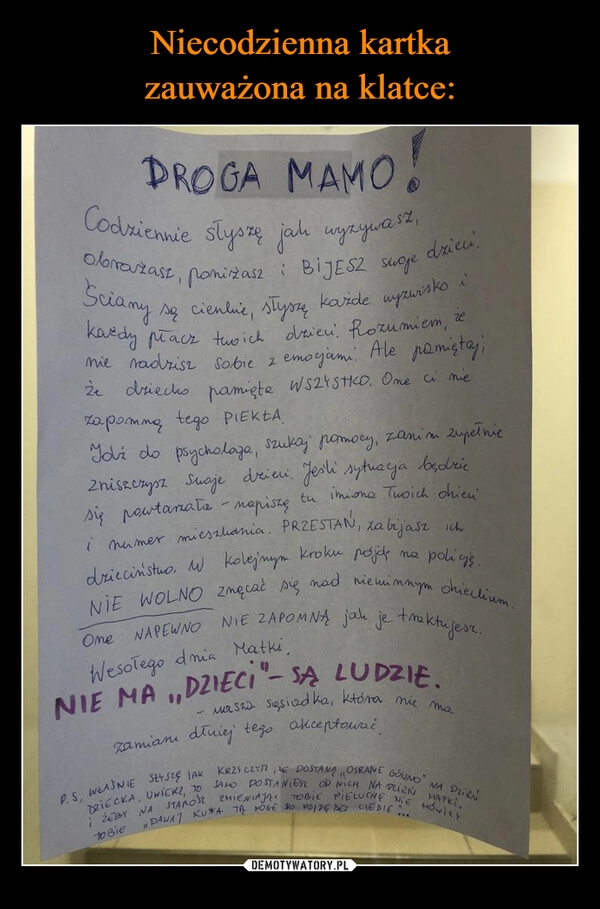 Niecodzienna kartka
zauważona na klatce:
DROGA MAMO!
Codziennie słyszę jak wyzywasz,
obrażasz, poniżasz i BIJESZ swoje dzieci.
Ściany są cienkie, słyszę każde wyzwisko i
każdy płacz twoich dzieci. Rozumiem, że
nie radzisz sobie z emocjami. Ale pamiętaj,
że dziecko pamięta WSZYSTKO. One ci nie
zapomną tego PIEKŁA.
Idź do psychologa, szukaj pomocy, zanim zupełnie
zniszczysz swoje dzieci. Jeśli sytuacja będzie
się powtarzała - napiszę tu imiona Twoich dzieci
i numer mieszkania. PRZESTAŃ, zabijasz ich
dzieciństwo. W kolejnym kroku pójdę na policję.
NIE WOLNO znęcać się nad niewinnym dzieckiem.
One NAPEWNO NIE ZAPOMNĄ jak je traktujesz.
Wesołego dnia Matki.
NIE MA „DZIECI" - SĄ LUDZIE.
- wasza sąsiadka, która nie ma
zamiaru dłużej tego akceptować.
P.S. WŁAŚNIE SŁYSZĘ JAK KRZYCZYSZ, ŻE DOSTANĄ „OSRANE GÓWNO" NA DZIEŃ
DZIECKA, UWIERZ, TO SAMO DOSTANIESZ OD NICH NA DZIEŃ MATKI.
I ŻEBY NA STAROŚĆ ZMIENIAJĄC TOBIE PIELUCHĘ NIE MÓWILI
TOBIE „DAWAJ KU*A TĄ NOGĘ BO
DEMOTYWATORY.PL